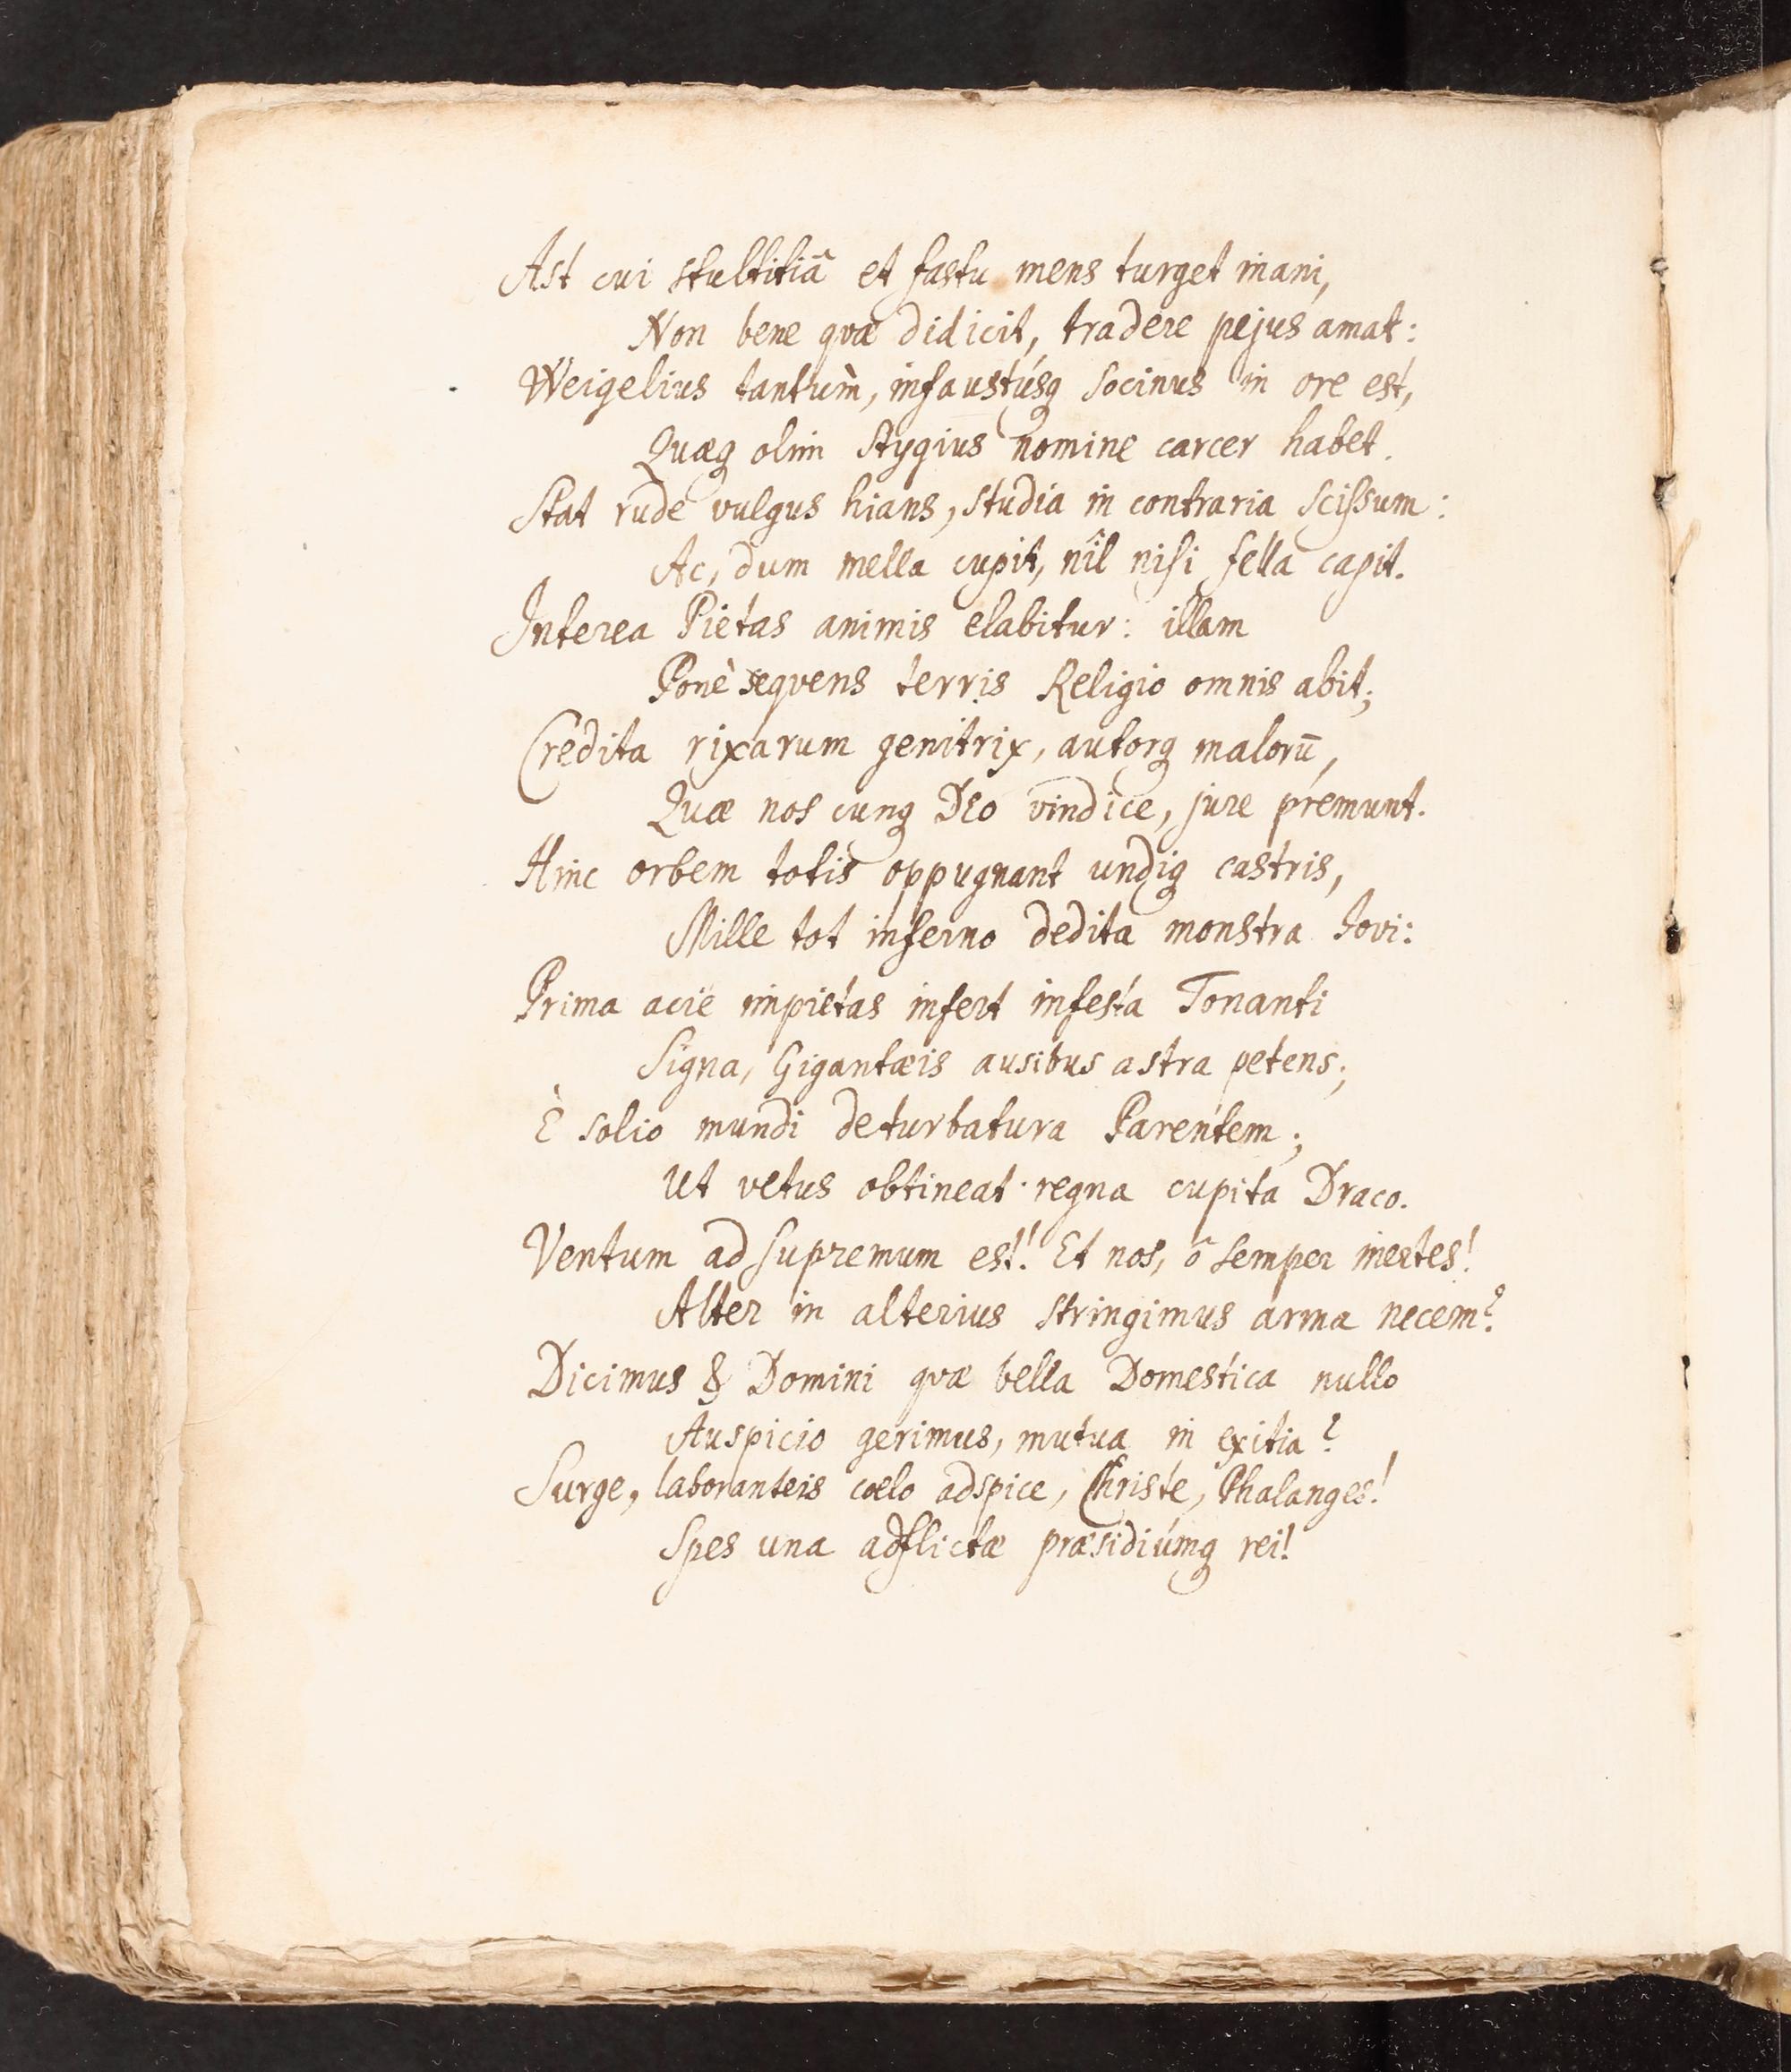 Ast cui stultitiâ et fastu mens turget inani,
Non bene quæ didicit, tradere pejus amat:
Weigelius tantùm, infaustúsq Socinus in ore est,
Quæq olim Stygius nomine carcer habet.
Stat rude vulgus hians, studia in contraria scissum:
Ac, dum mella cupit, nîl nisi fella capit.
Interea Pietas animis elabitur: illam
Ponè sequens terris Religio omnis abit;
Credita rixarum genitrix, autorq malorū,
Quæ nos cunq Deo vindice, jure premunt.
Hinc orbem totis oppugnant undiq castris,
Mille tot inferno dedita monstra Jovi:
Prima acie impietas infert infesta Tonanti
Signa, Gigantæis ausibus astra petens;
È solio mundi deturbatura Parentem;
Ut vetus obtineat regna cupita Draco.
Ventum ad supremum est! Et nos, ô semper inertes!
Alter in alterius stringimus arma necem?
Dicimus & Domini quæ bella Domestica nullo
Auspicio gerimus, mutua in exitia?
Surge, laboranteis coelo adspice, Christe, Phalanges!
Spes una adflictæ præsidiúmq rei!